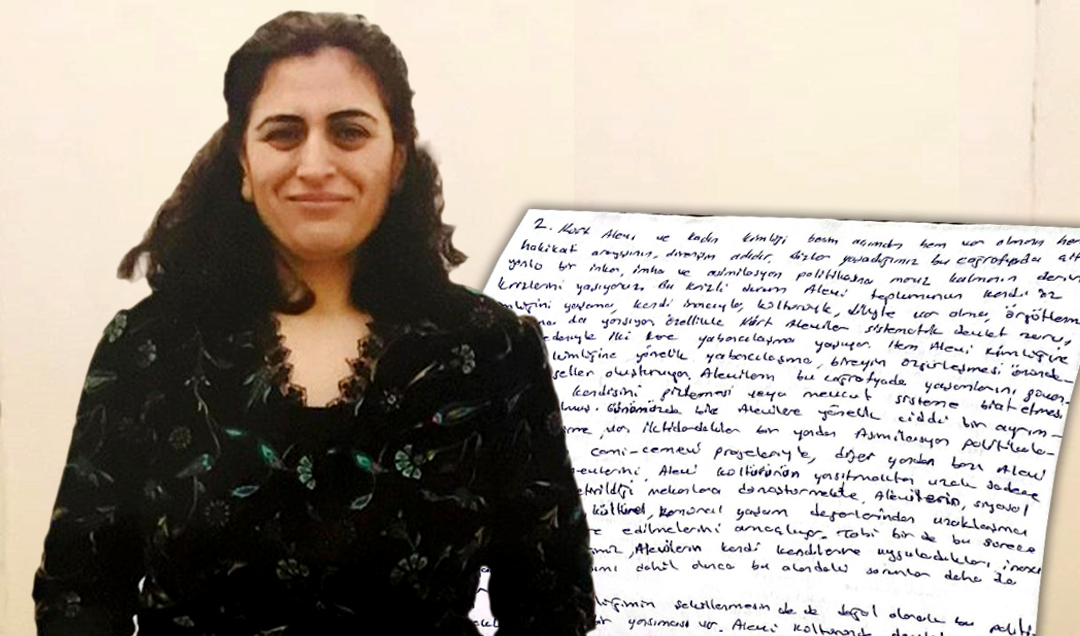 2. Kürt Alevi ve kadın kimliği benim açımdan hem var olmanın hem
hakikat arayışının, direnişin adıdır. Bizler yaşadığımız bu coğrafyada
yönlü bir inkar, imha ve asimilasyon politikasına maruz kalmanın derin
krizlerini yaşıyoruz. Bu krizli durum Alevi toplumunun kendi öz
kimliğini yaşama, kendi inancıyla, kültürüyle, diliyle var olma, örgütlem
da yansıyor özellikle Kürt Aleviler sistematik devlet zoru,
nedeniyle iki kere yabancılaşma yaşıyor. Hem Alevi kimliğine
kimliğine yönelik yabancılaşma, bireyin özgürleşmesi önünde
engeller oluşturuyor. Alevilerin bu coğrafyada yaşamlarını güven
kendisini gizlemesi veya mevcut sisteme biat etmesi
Günümüzde bile Alevilere yönelik ciddi bir ayrım-
var. İktidardakiler bir yandan Asimilasyon politikala-
cami-cemevi projeleriyle, diğer yandan bazı Alevi
Alevi kültürünün yaşatmaktan uzak sadece
mekanlara dönüştürmekte, Alevilerin, siyasal
kültürel, komünal yaşam değerlerinden uzaklaşma
edilmelerini amaçlıyor. Tabi bir de bu sürece
Alevilerin kendi kendilerine uyguladıkları
dahil olunca bu alandaki sorunlar daha da
kimliğimin şekillenmesinde de doğal olarak bu
bir yansıması var. Alevi kültüründe